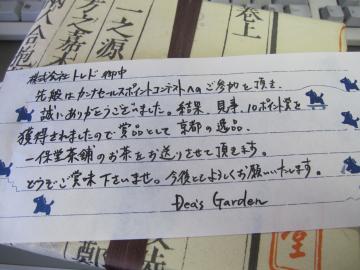 巻上
一之源
株式会社トレド 御中
先般はカンナセールスポイントコンテストへのご参加を頂き、
誠にありがとうございました。結果、見事、10ポイント賞を
獲得されましたので賞品として京都の逸品、
一保堂茶舗のお茶をお送りさせて頂きます。
どうぞご賞味下さいませ。今後ともよろしくお願いいたします。
Dea's Garden
堂